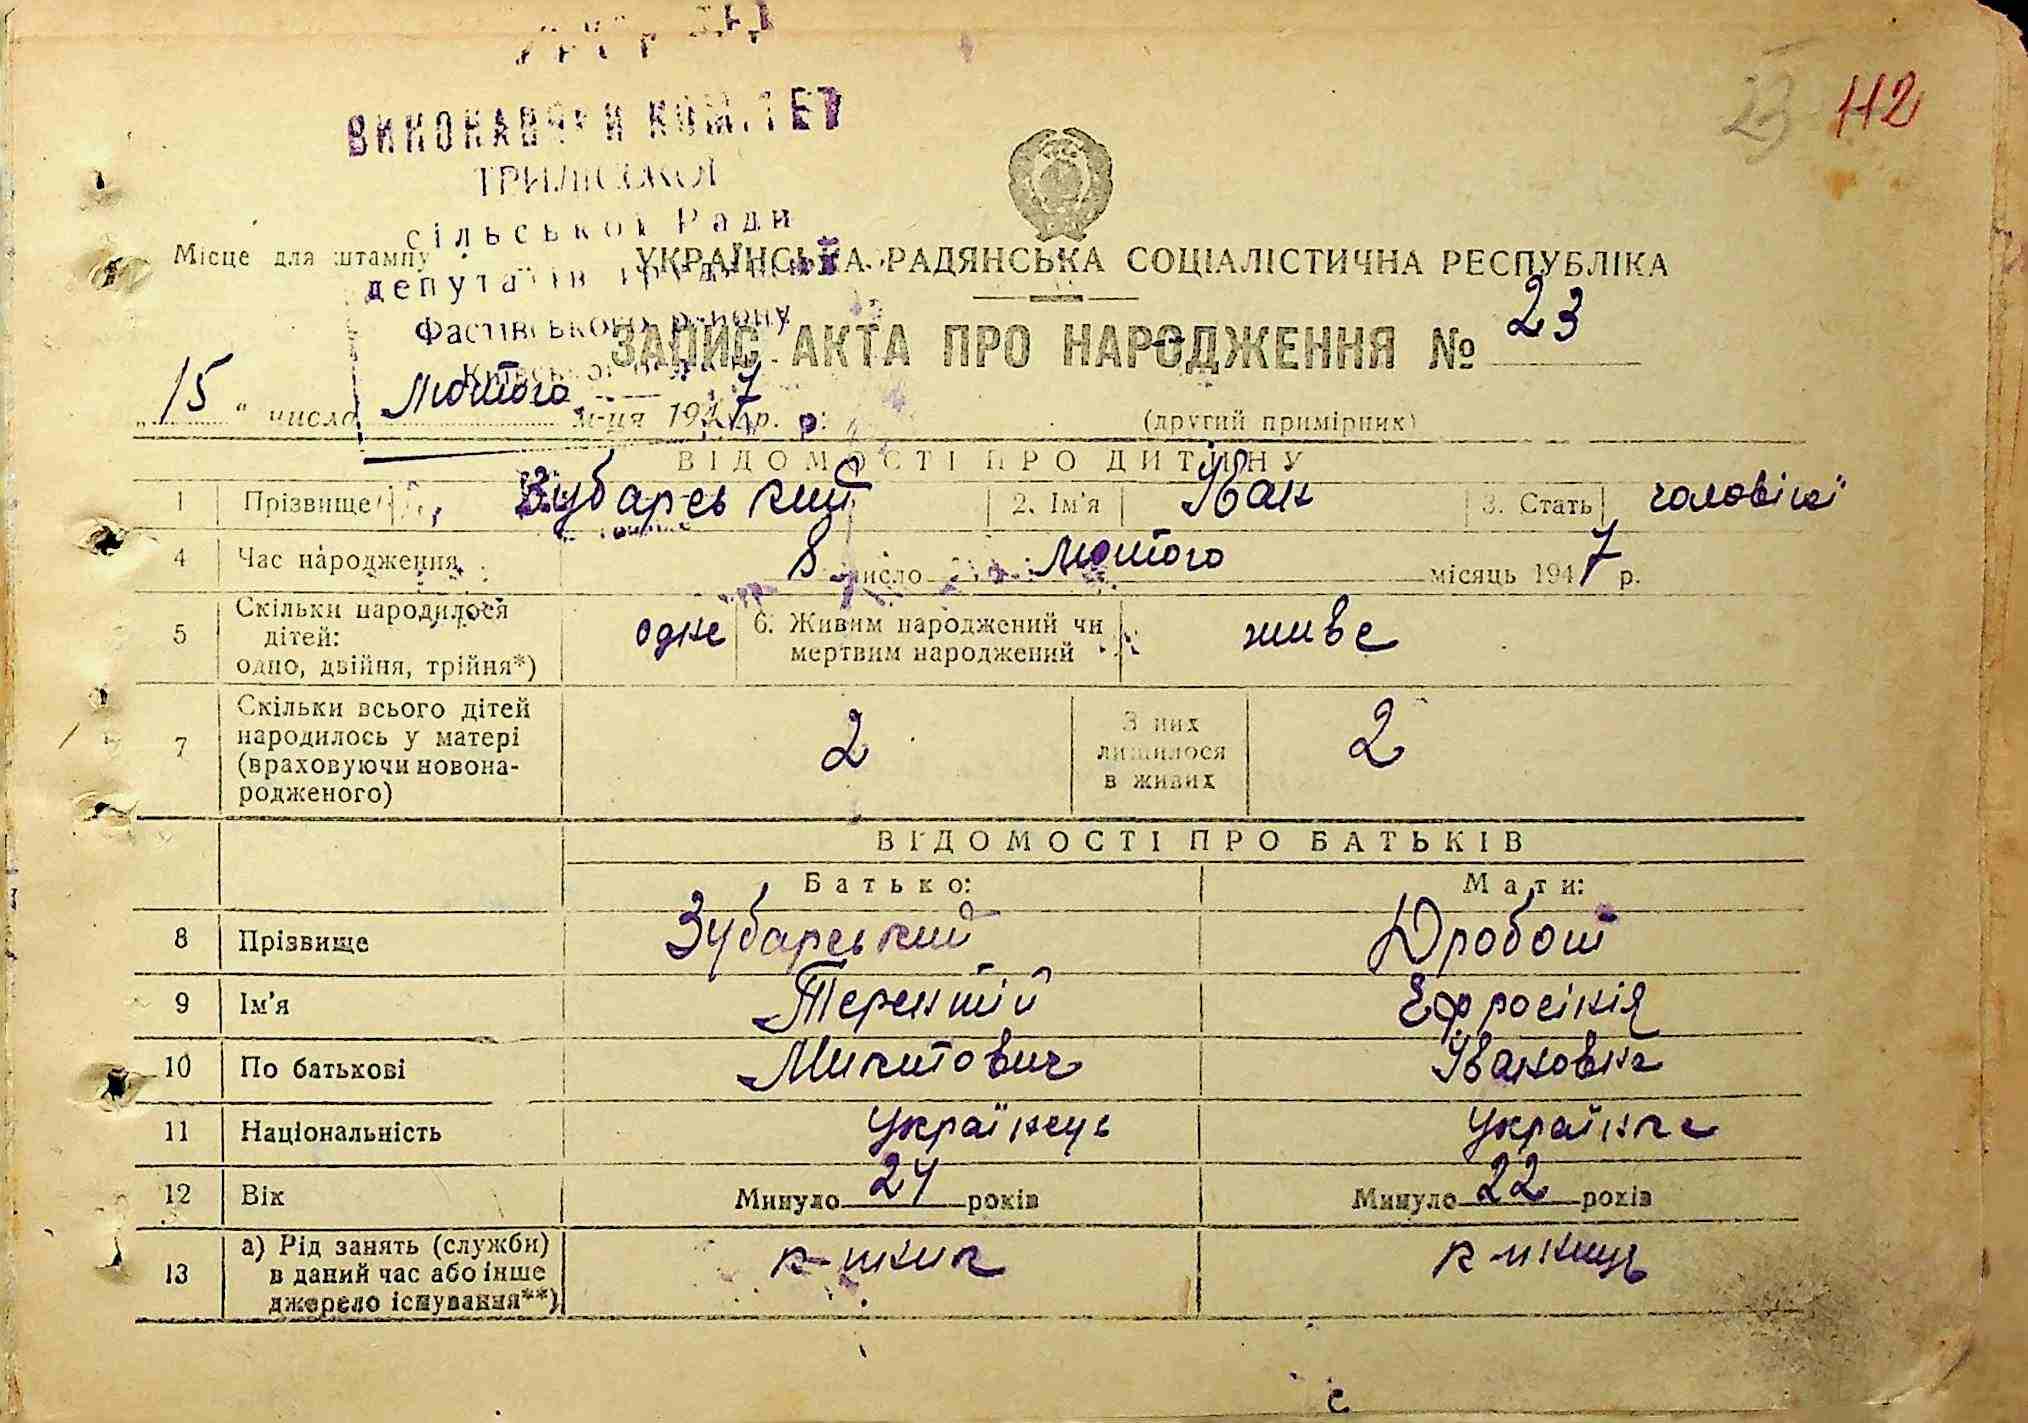 23 112
ВИКОНАВЧИЙ КОМІТЕТ
ТРИЛІСЬКОЇ
сільської Ради
депутатів трудящих
Фастівського району
Київської
Місце для штампу
УКРАЇНСЬКА РАДЯНСЬКА СОЦІАЛІСТИЧНА РЕСПУБЛІКА
ЗАПИС АКТА ПРО НАРОДЖЕННЯ № 23
„15" число лютого м-ця 1947 р.
(другий примірник)
ВІДОМОСТІ ПРО ДИТИНУ
1 Прізвище Зубарський 2. Ім'я Іван 3. Стать чоловічої
4 Час народження 8 число лютого місяць 1947 р.
5 Скільки народилося дітей: одно, двійня, трійня*) одне 6. Живим народжений чи мертвим народжений живе
7 Скільки всього дітей народилось у матері (враховуючи новонародженого) 2 З них лишилося в живих 2
ВІДОМОСТІ ПРО БАТЬКІВ
Батько: Мати:
8 Прізвище Зубарський Дробот
9 Ім'я Терентій Єфросінія
10 По батькові Микитович Івановна
11 Національність Українець Українка
12 Вік Минуло 24 років Минуло 22 років
13 а) Рід занять (служби) в даний час або інше джерело існування**) к-шник к-шниць